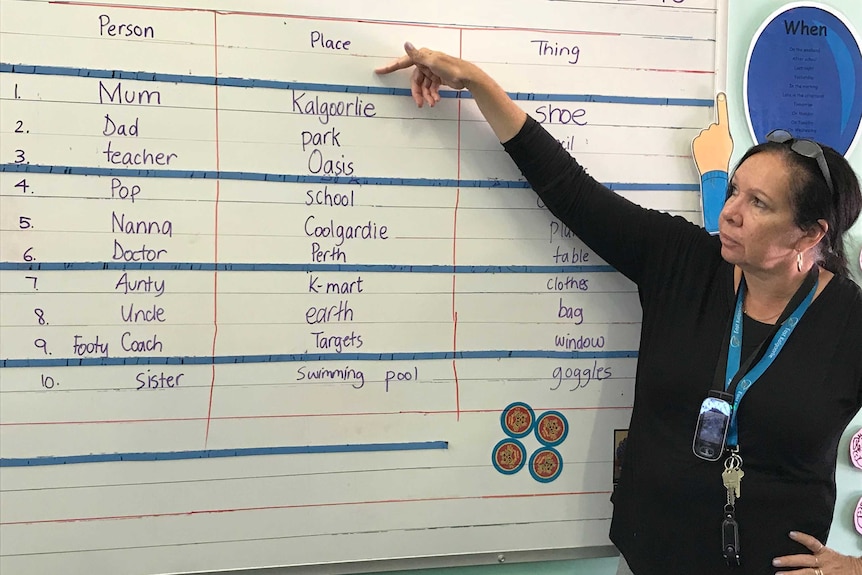 Person Place Thing When
1. Mum Kalgoorlie shoe
2. Dad park
3. teacher Oasis
4. Pop school
5. Nanna Coolgardie
6. Doctor Perth table
7 Aunty K-mart clothes
8. Uncle earth bag
9. Footy Coach Targets window
10. sister Swimming pool goggles